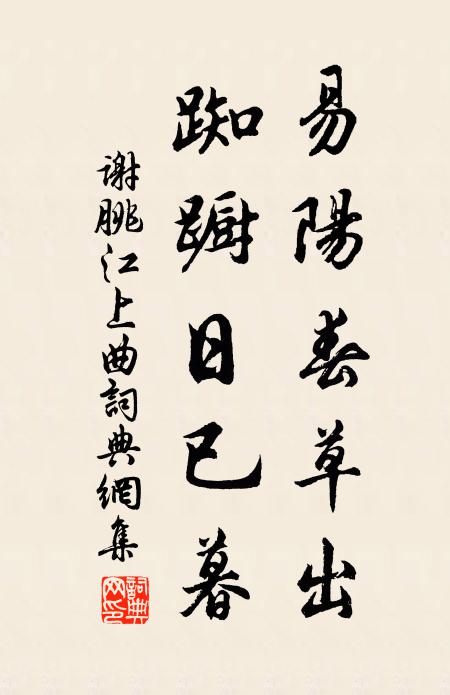 易陽春草出
踟躕日已暮
謝朓江上曲詞典網集
詞典網印